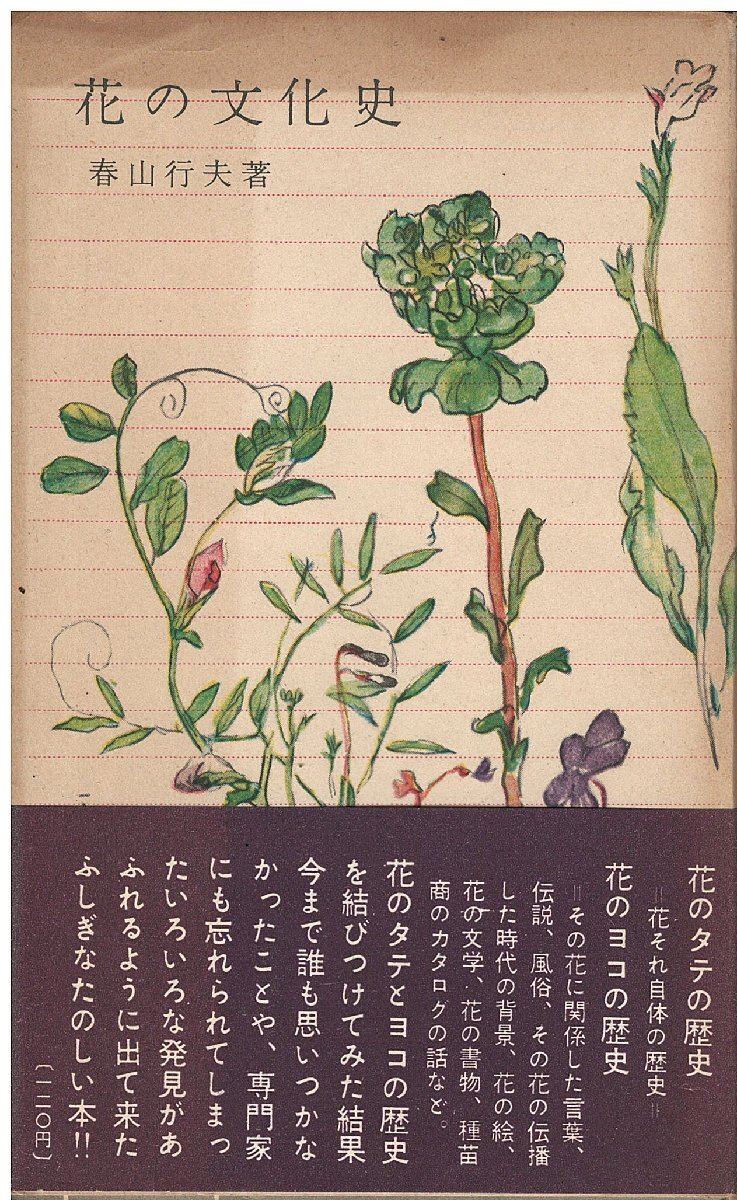 花の文化史
春山行夫著
花のタテの歴史
＝花それ自体の歴史＝
花のヨコの歴史
＝その花に関係した言葉、
伝説、風俗、その花の伝播
した時代の背景、花の絵、
花の文学、花の書物、種苗
商のカタログの話など。
花のタテとヨコの歴史
を結びつけてみた結果
今まで誰も思いつかな
かったことや、専門家
にも忘れられてしまっ
たいろいろな発見があ
ふれるように出て来た
ふしぎなたのしい本!!
〔一二〇円〕